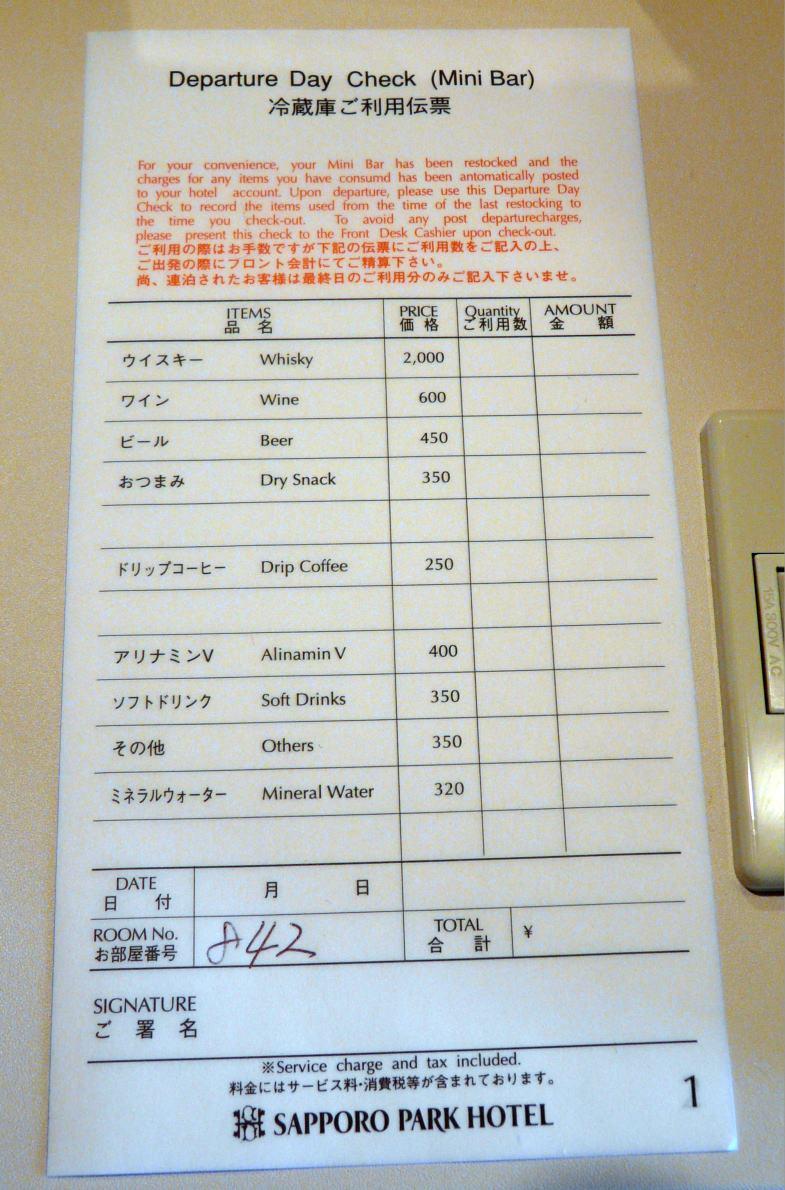 Departure Day Check (Mini Bar)
冷蔵庫ご利用伝票
For your convenience, your Mini Bar has been restocked and the
charges for any items you have consumd has been antomatically posted
to your hotel account. Upon departure, please use this Departure Day
Check to record the items used from the time of the last restocking to
the time you check-out. To avoid any post departurecharges,
please present this check to the Front Desk Cashier upon check-out.
ご利用の際はお手数ですが下記の伝票にご利用数をご記入の上、
ご出発の際にフロント会計にてご精算下さい。
尚、連泊されたお客様は最終日のご利用分のみご記入下さいませ。
ITEMS PRICE Quantity AMOUNT
品 名 価 格 ご利用数 金 額
ウイスキー Whisky 2,000
ワイン Wine 600
ビール Beer 450
おつまみ Dry Snack 350
ドリップコーヒー Drip Coffee 250
アリナミンV Alinamin V 400
ソフトドリンク Soft Drinks 350
その他 Others 350
ミネラルウォーター Mineral Water 320
DATE
日 付 月 日
ROOM No. 842 TOTAL ¥
お部屋番号 合 計
SIGNATURE
ご 署 名
※Service charge and tax included.
料金にはサービス料・消費税等が含まれております。
SAPPORO PARK HOTEL
1
10A 300V AC